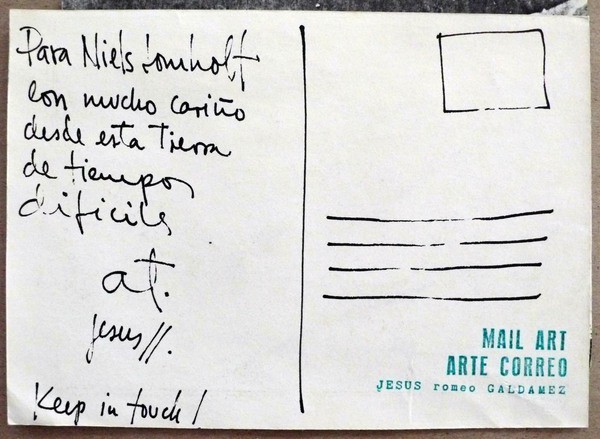 Para Niels Lomholt
con mucho cariño
desde esta Tierra
de tiempos
dificiles
at.
jesus//.
Keep in touch!
MAIL ART
ARTE CORREO
JESUS romeo GALDAMEZ